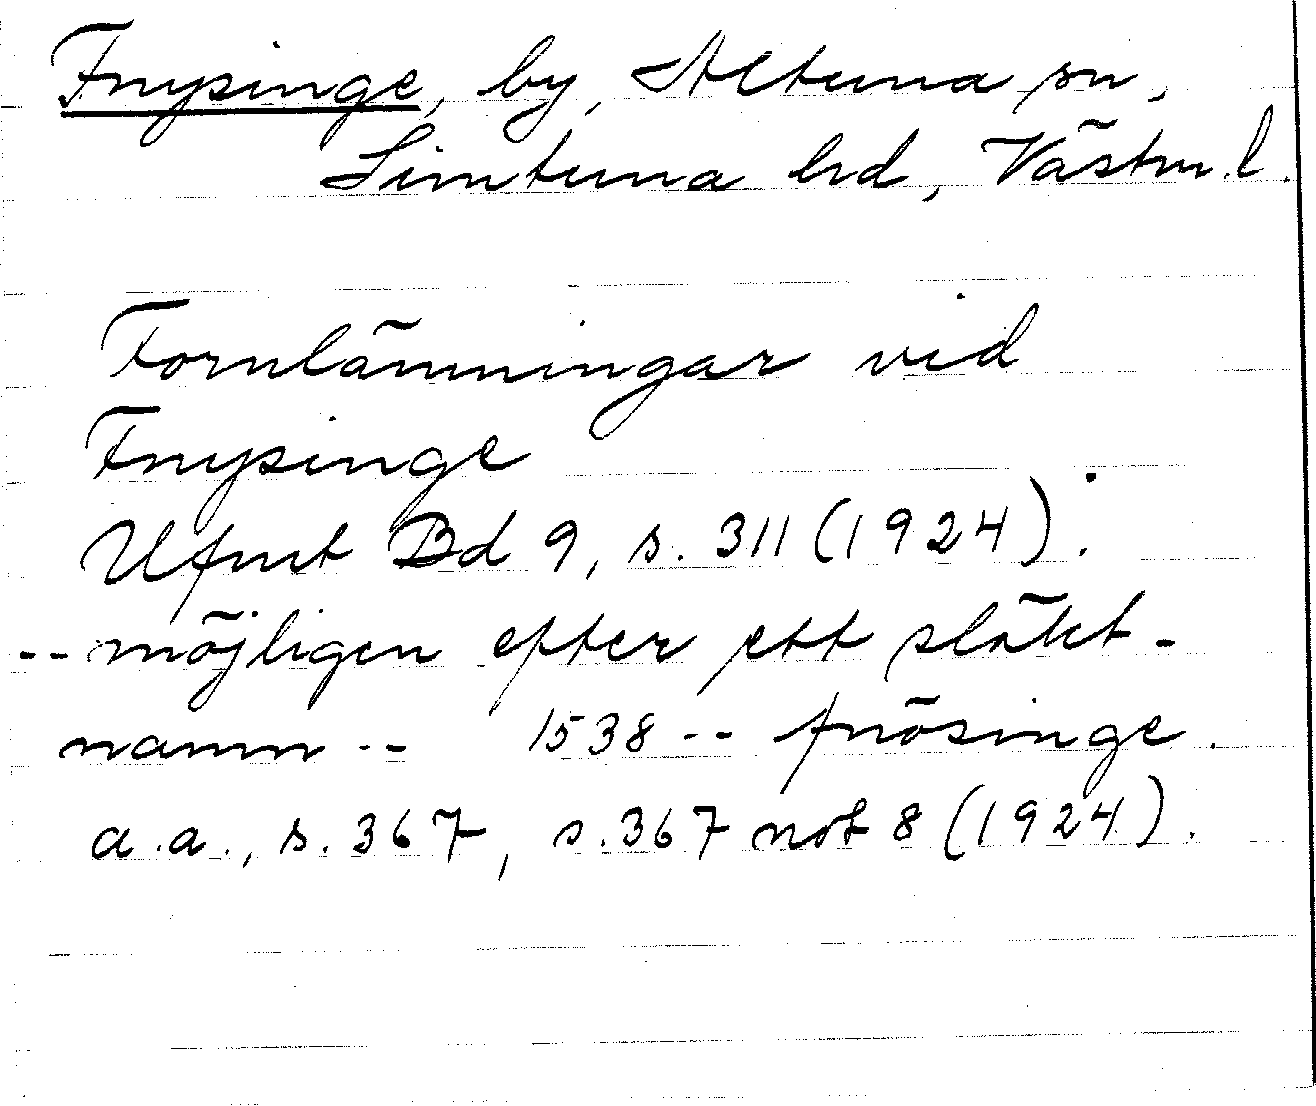 Fnysinge, by, Altuna sn,
Simtuna hd, Västm. l.
Fornlämningar vid
Fnysinge
Ufmt Bd 9, s. 311 (1924).
-- möjligen efter ett släkt-
namn -- 1538 -- fnösinge.
a.a., s. 367, s. 367 not 8 (1924).